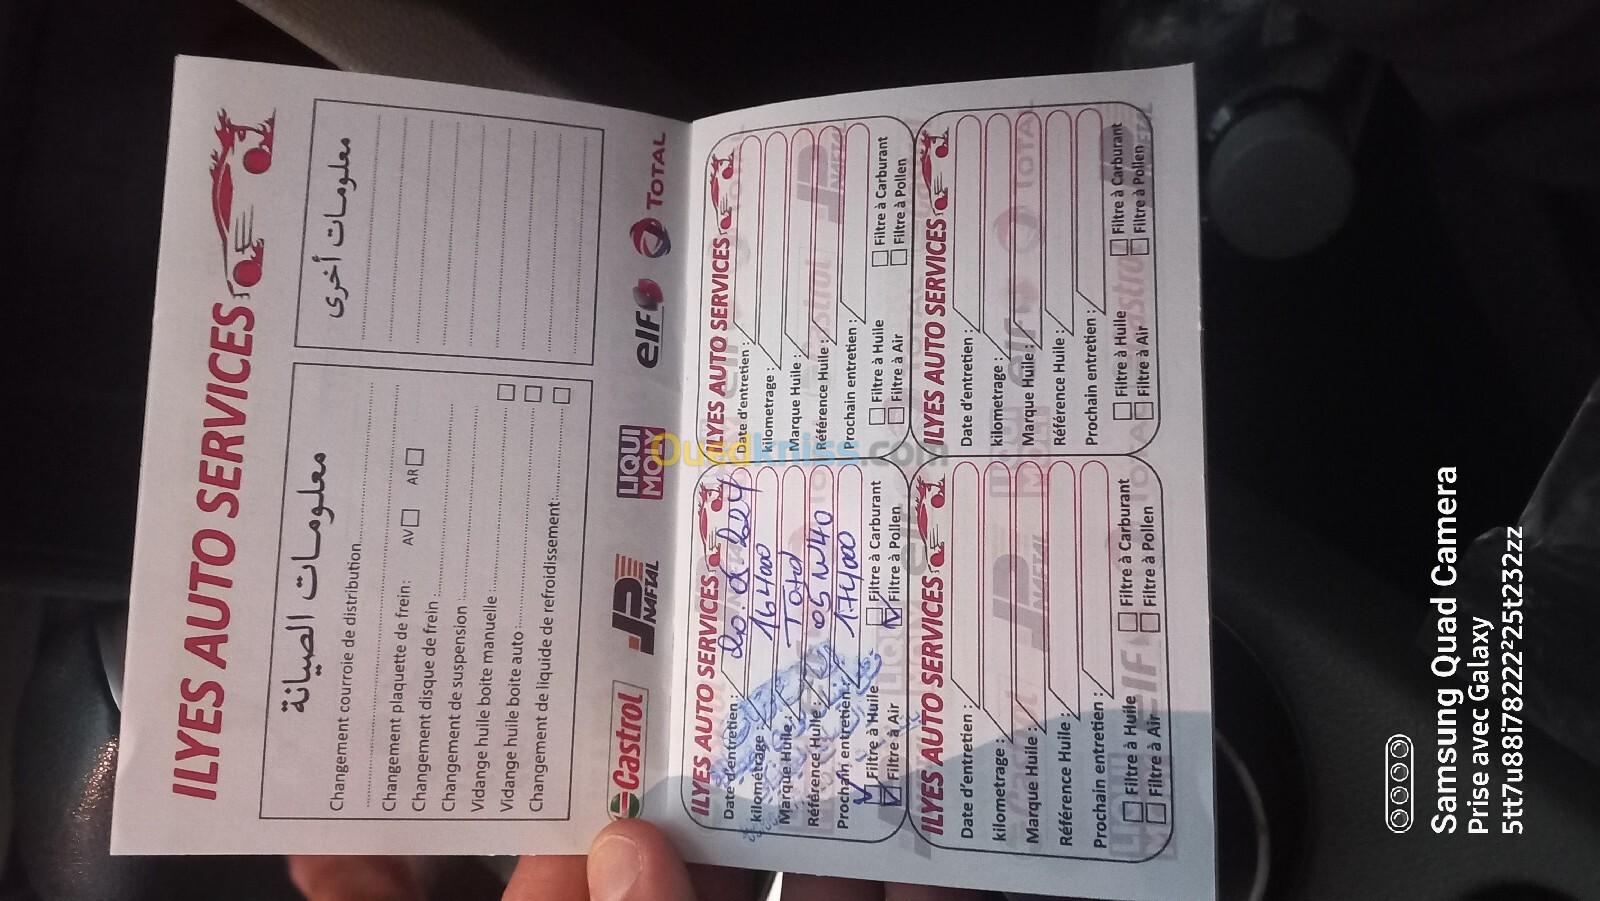 ILYES AUTO SERVICES
معلومات الصيانة
Changement courroie de distribution
Changement plaquette de frein: AV AR
Changement disque de frein :
Changement de suspension
Vidange huile boite manuelle
Vidange huile boite auto :
Changement de liquide de refroidissement
معلومات أخرى
Castrol
NAFTAL
LIQUI MOLY
elf
TOTAL
ILYES AUTO SERVICES
Date d'entretien : 2024
kilométrage : 164000
Marque Huile : Total
Référence Huile : 05W40
Prochain entretien : 174000
Filtre à Huile Filtre à Carburant
Filtre à Air Filtre à Pollen
ILYES AUTO SERVICES
Date d'entretien :
kilometrage :
Marque Huile :
Référence Huile :
Prochain entretien :
Filtre à Huile Filtre à Carburant
Filtre à Air Filtre à Pollen
ILYES AUTO SERVICES
Date d'entretien :
kilometrage :
Marque Huile :
Référence Huile :
Prochain entretien :
Filtre à Huile Filtre à Carburant
Filtre à Air Filtre à Pollen
ILYES AUTO SERVICES
Date d'entretien :
kilometrage :
Marque Huile :
Référence Huile :
Prochain entretien :
Filtre à Huile Filtre à Carburant
Filtre à Air Filtre à Pollen
Ouedkniss.com
Samsung Quad Camera
Prise avec Galaxy
5tt7u88i78222²25t232zz